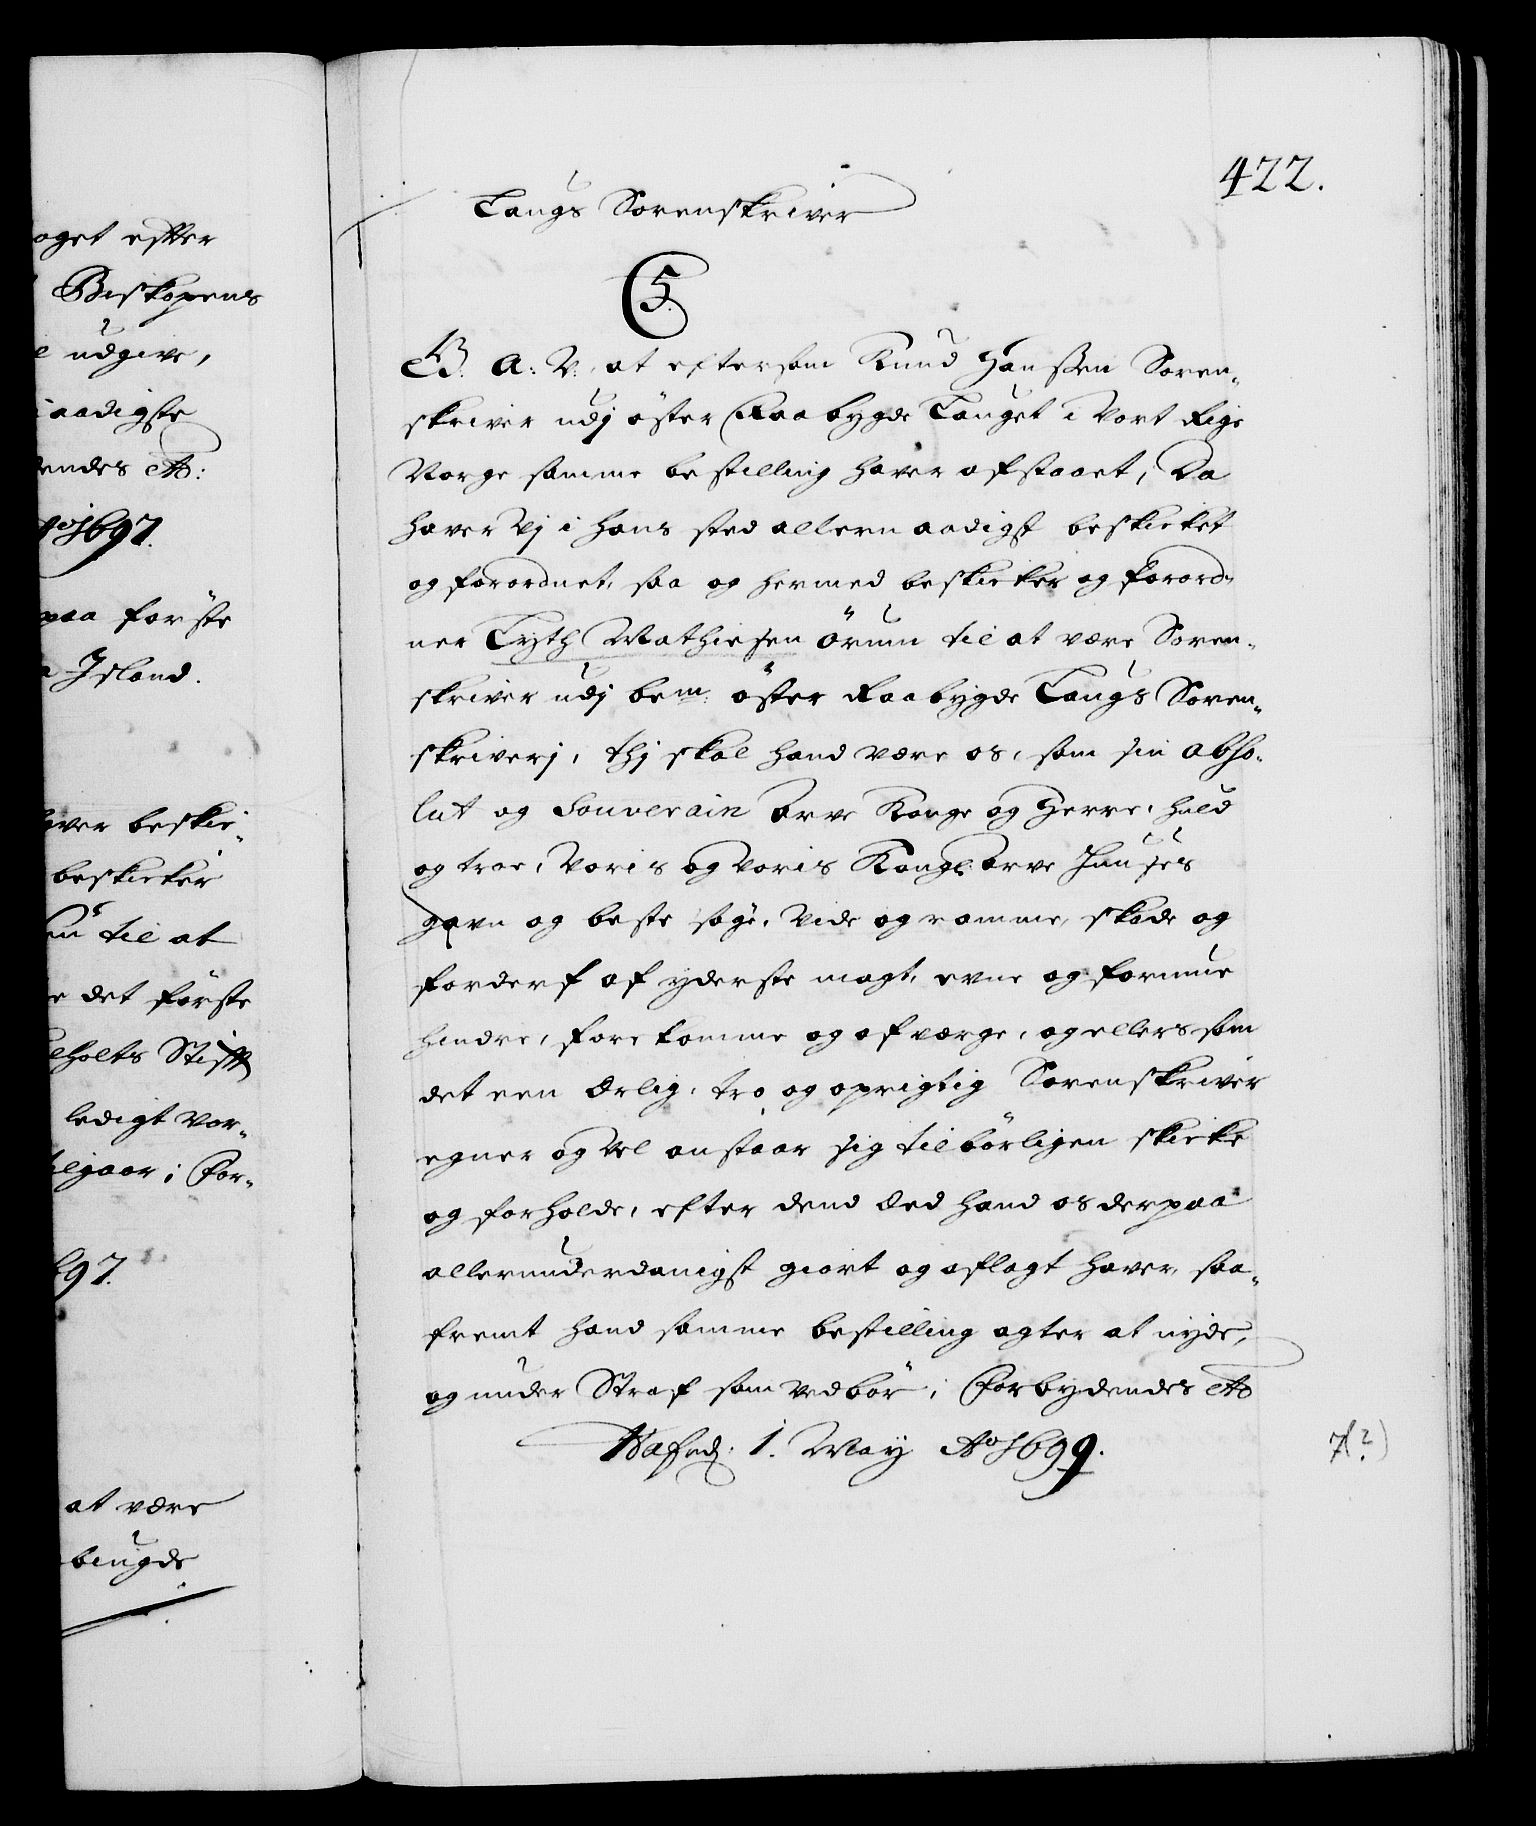 oget efter
Biskopens
udgive,
aadigste
endes etc:
Ao 1697.
paa förste
Island.
ver beskic-
beskicker
til at
det förste
holts Stift
ledigt vor-
elgaar i For-
97.
at være
bÿugde
422.
Laugs Sorenskriver
C5.
G. A: V: at eftersom Knud Hanssen Soren-
skriver udj öster Raabygde Lauget i Vort Rige
Norge samme bestilling haver afstaaet, Da
haver Vj i hans sted allernaadigst beskicket
og forordnet, saa og hermed beskicker og forord-
ner Tyth Mathiesen Örum til at være Soren-
skriver udj bem: öster Raabygde Laugs Soren-
skriverj, thj skal hand være os, som sin abso-
lut og Souverain Arve Konge og Herre, huld
og troe, Voris og Voris Kongl: Arve Huuses
gavn og beste söge, Vide og ramme, skade og
forderf af yderste magt, evne og formue
hindre, forekomme og afværge, og ellers som
det een Ærlig, tro og oprigtig Sorenskriver
egner og Vel anstaar sig tilbörligen skicke
og forholde, efter dend Eed hand os derpaa
allerunderdanigst giort og aflagt haver, saa-
fremt hand samme bestilling agter at nyde,
og under Straf som Vedbör; Forbydendes etc
Hafned: 1. May Ao 1699.
7(?)